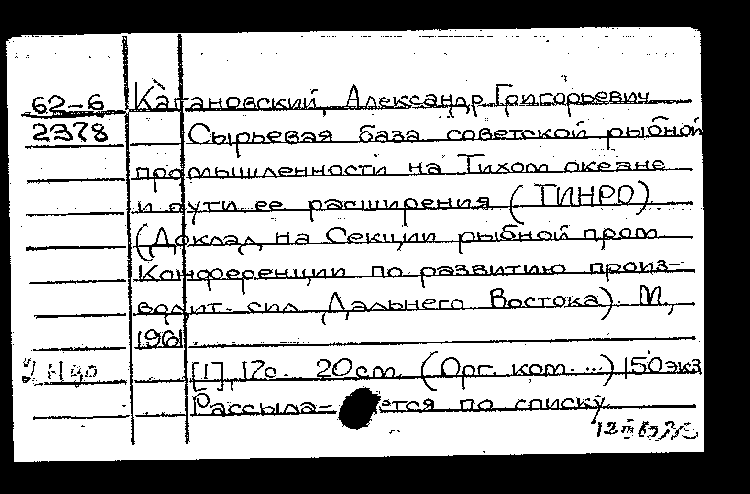 62-6 Кагановский, Александр Григорьевич
2378 Сырьевая база советской рыбной
промышленности на Тихом океане
и пути ее расширения (ТИНРО).
(Доклад на Секции рыбной пром.
Конференции по развитию произ-
водит. сил Дальнего Востока). М.,
1961.
[1], 17с. 20см. (Орг. ком. ...) 150экз
Рассыла- ется по списку